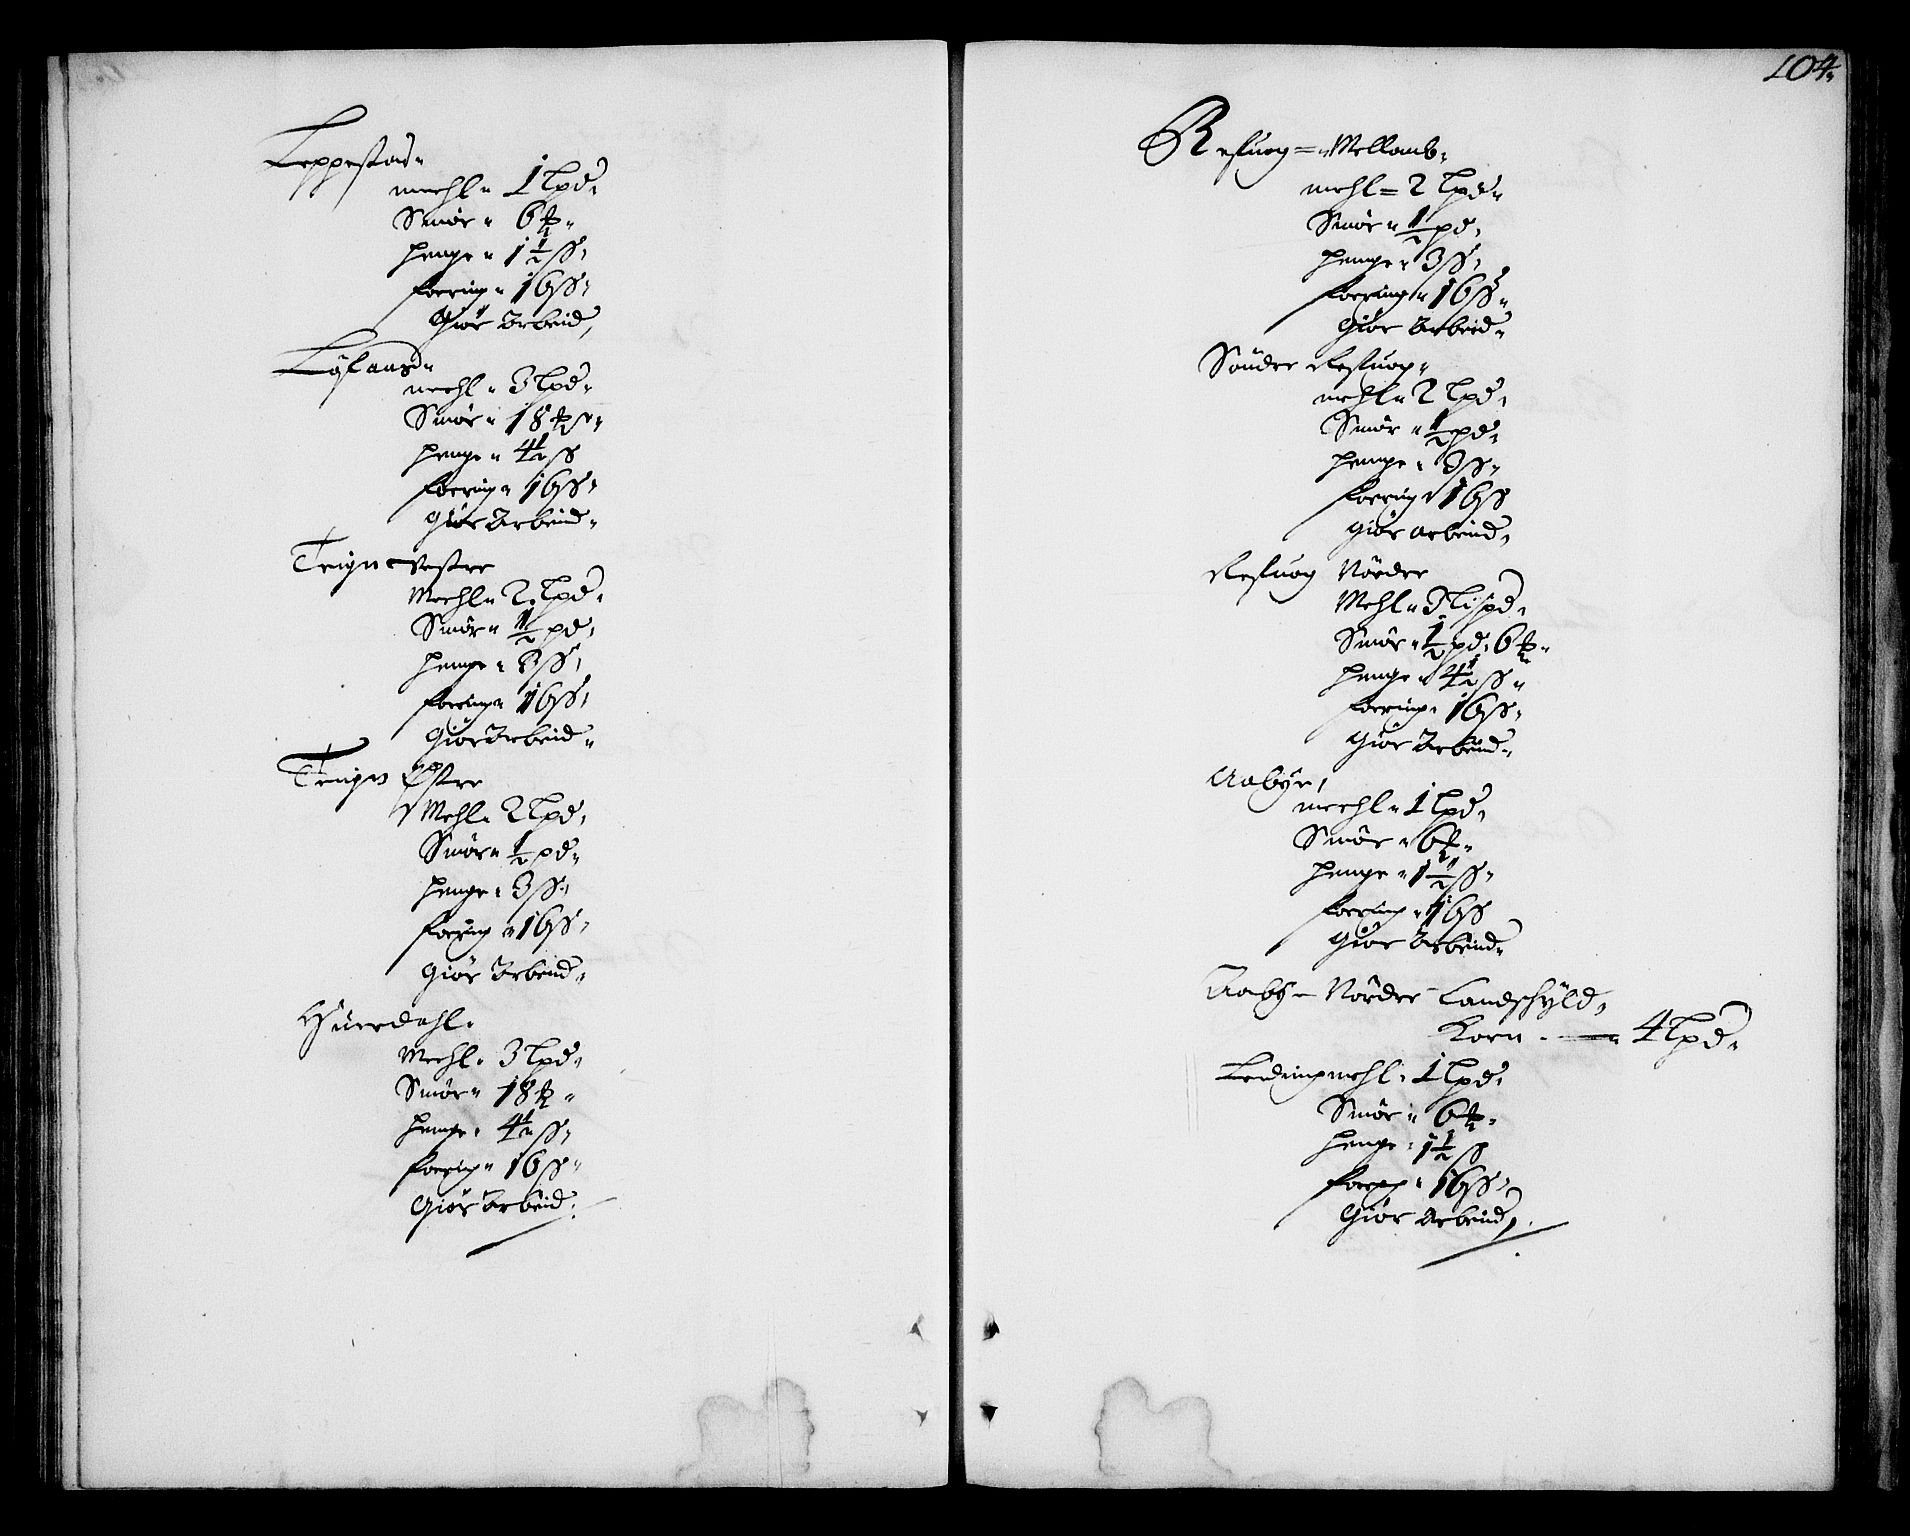 Leppestad
meehl 1 lpd
Smør 6 ℔
penge 1½ ß
foering 16 ß
Giør Arbeid
Løfaas
meehl 3 lpd
Smør 18 ℔
penge 4½ ß
foering 16 ß
Giør Arbeid
Teigen Vestre
Meehl 2 lpd
Smør ½ pd
penge 3 ß
foering 16 ß
Giør Arbeid
Teigen Østre
Mehl 2 lpd
Smør ½ pd
penge 3 ß
foering 16 ß
Giør Arbeid
Meehl 3 lpd
Smør 18 ℔
penge 4½ ß
foering 16 ß
Giør Arbeid
104
Refsuog = Mellomb
mehl = 2 lpd
Smør ½ pd
penge 3 ß
foering 16 ß
Giør Arbeid
Sønder Refsuog
mehl 2 lpd
Smør ½ pd
penge 3 ß
foering 16 ß
giør arbeid
Refsuog Nørdre
Mehl 3 lispd
Smør ½ pd 6 ℔
penge 4½ ß
foering 16 ß
Giør Arbeid
Aabye
meehl 1 lpd
Smør 6 ℔
penge 1½ ß
foering 16 ß
Giør Arbeid
Aaby Nørdre Landschyld
Korn 4 lpd
Ledingmehl 1 lpd
Smør 6 ℔
penge 1½ ß
foering 16 ß
Giør Arbeid